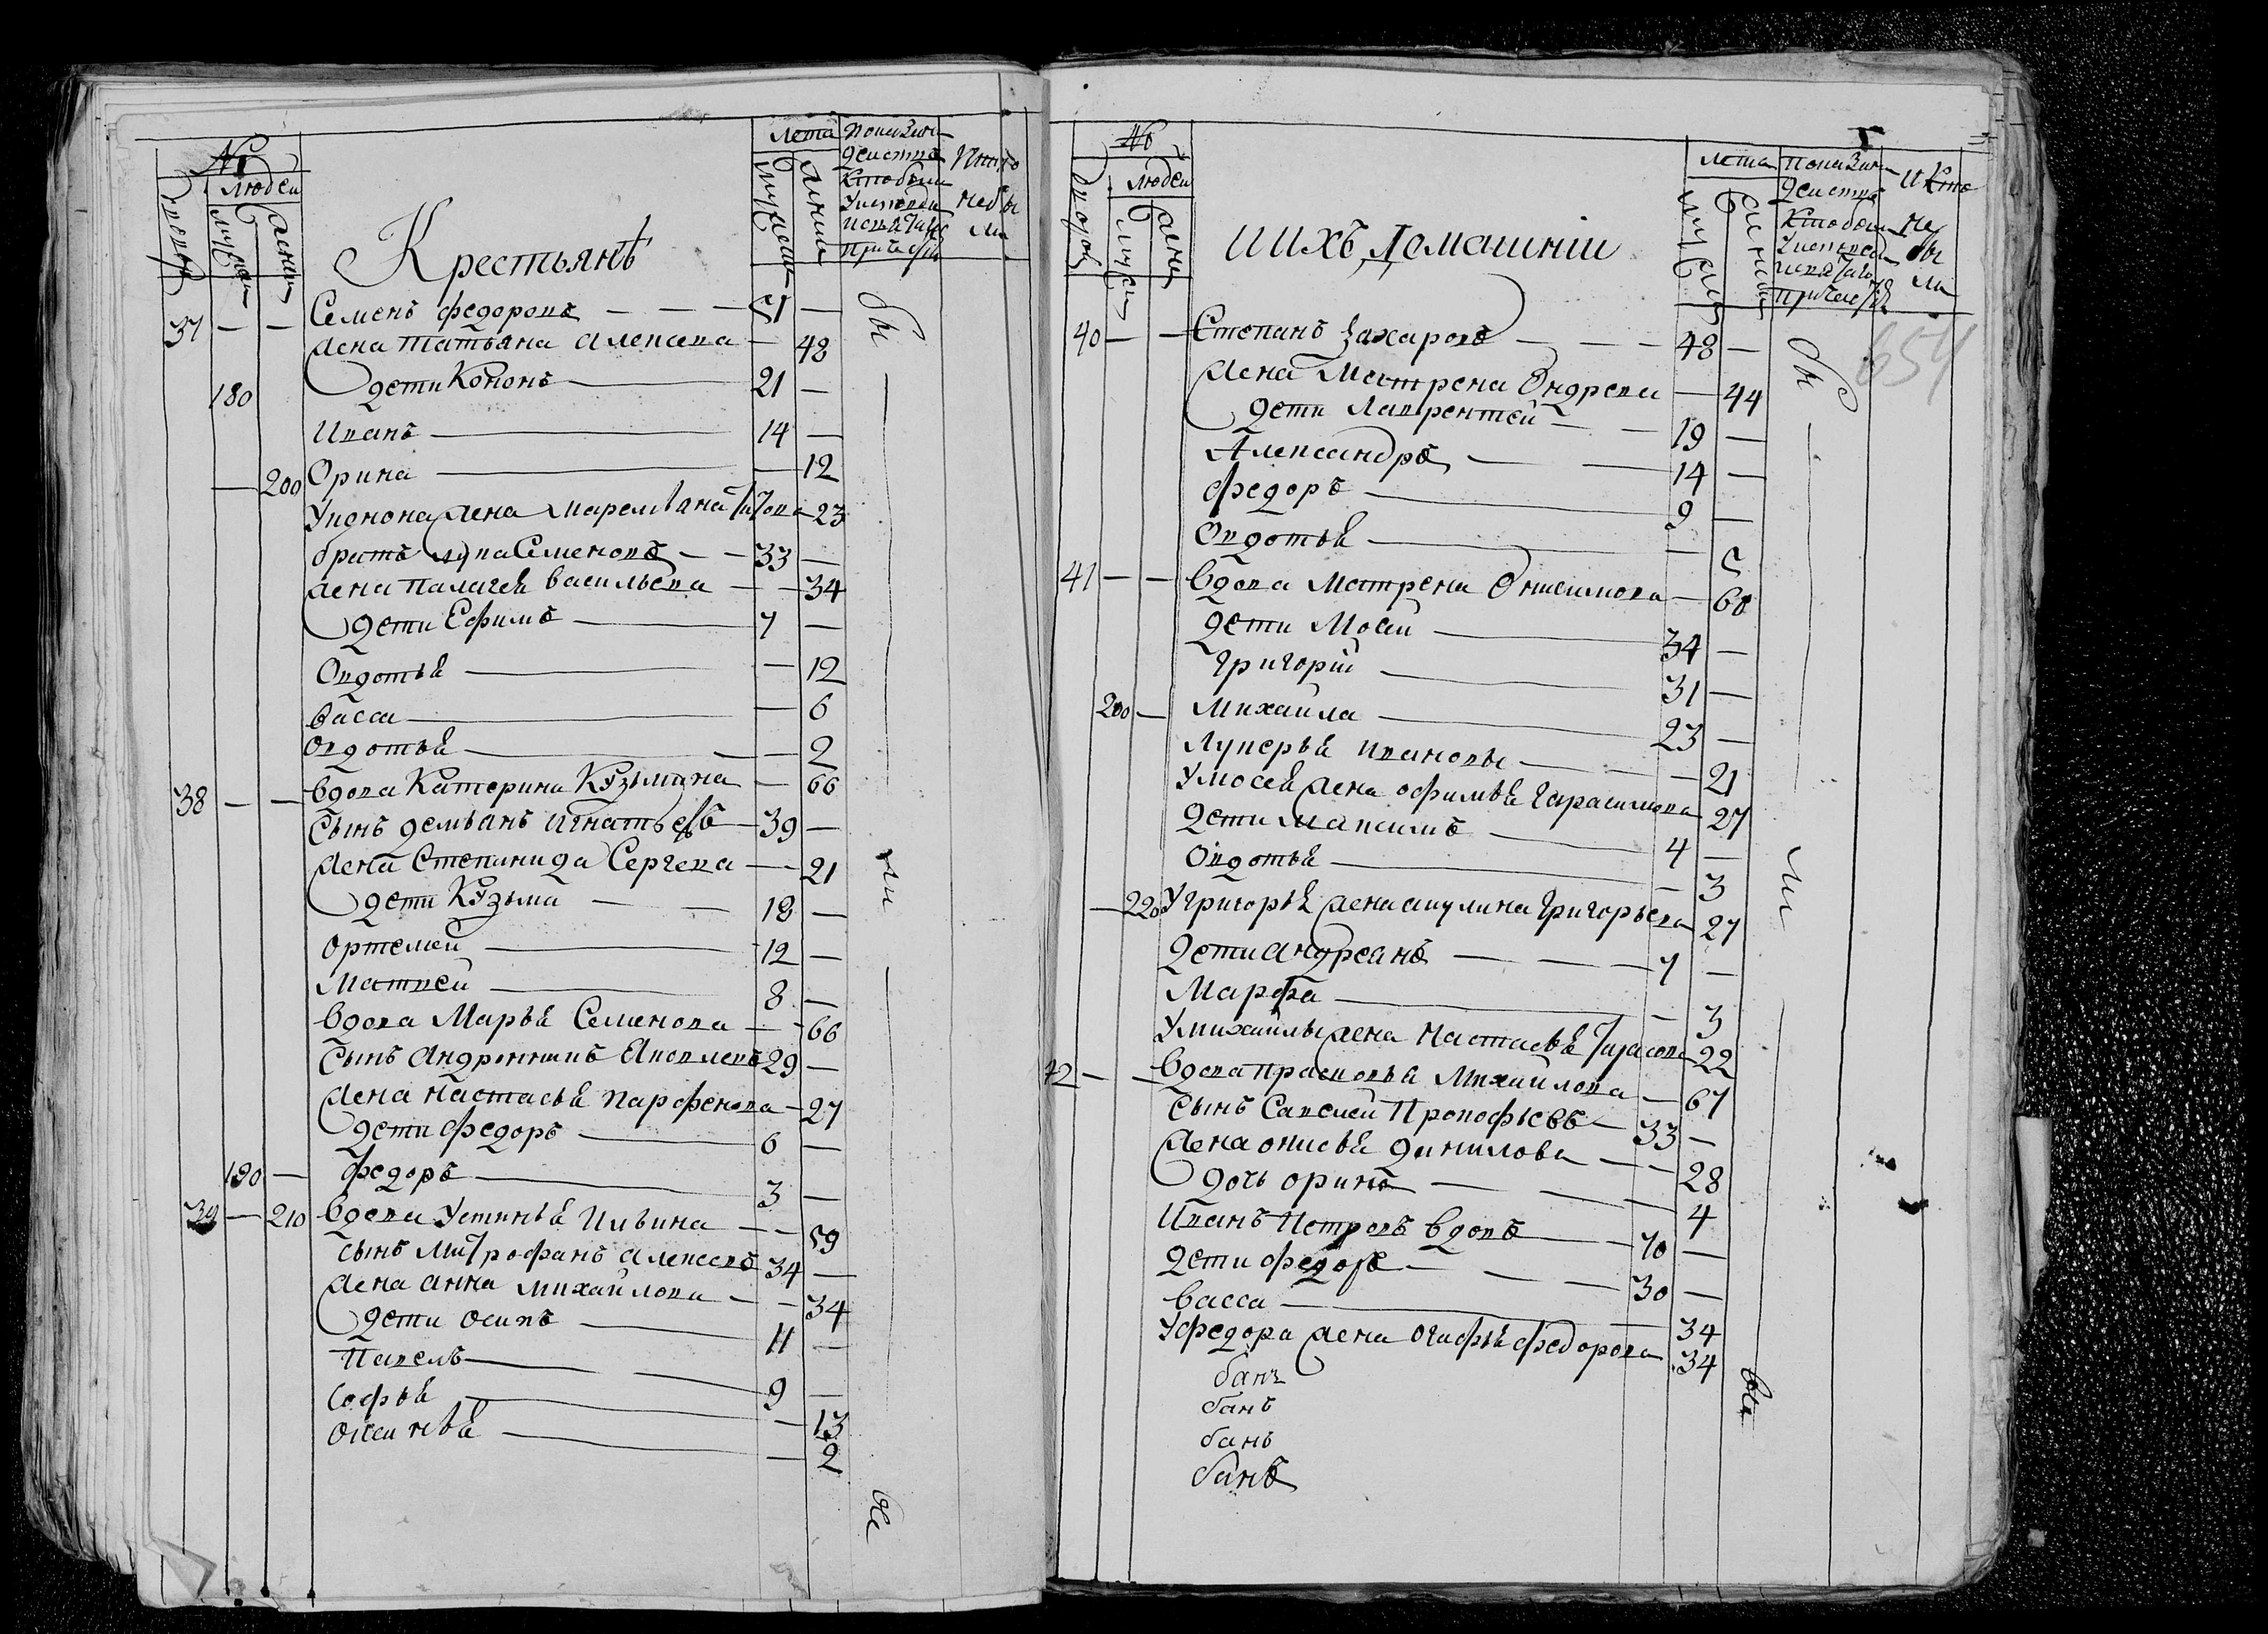 №
дворовъ
людей
мужеска
женска
Крестьянѣ
лета
мужеска
женска
Показание
действа
Кто былъ
Уисповеди
и святаго
причастия
И кто
не бы
ли
37 — — Семенъ Федоровъ — — — 51 —
жена Татьяна Алексева — 48
180 дети Кононъ — 21 —
Иванъ — 14 —
— 200 Орина — — 12
Уконона жена Маремьяна Титова 23
братъ Лука Семеновъ — — 33 —
жена Палагея Васильева — — 34
дети Ефимъ — 7 —
Овдотья — — 12
Васса — — 6
Овдотья — — 2
38 — — Вдова Катерина Кузьмина — 66
Сынъ Демьянъ Игнатьевъ — 39 —
жена Степанида Сергева — — 21
дети Кузьма — — 18 —
Ортемей — 12 —
Матвей — 8 —
Вдова Марья Семенова — — 66
Сынъ Андронникъ Яковлевъ 29 —
жена Настасья Парфенова — 27
дети Федоръ — 6 —
190 — Федоръ — 3 —
39 — 210 Вдова Устинья Ильина — — 59
сынъ Митрофанъ Алексевъ 34 —
жена Анна Михайлова — — 34
дети Осипъ — 11 —
Павелъ — 9 —
Софья — — 13
Оксинья — — 2
бы
ли
все
№
дворовъ
людей
мужеска
женска
ИИХЪ Домашнiи
лета
мужеска
женска
Показание
действа
Кто былъ
Уисповеди
и святаго
причастия
И кто
не
бы
ли
654
40 — — Степанъ Захаровъ — — — 48 —
жена Матрена Ондрева — 44
дети Лаврентей — — 19 —
Александръ — — 14 —
Федоръ — 9 —
Овдотья — — 5
41 — — Вдова Матрена Онисимова — 60
дети Мосей — 34 —
Григорiй — 31 —
200 — Михаила — 23 —
Лукерья Иванова — — — 21
Умосея жена Офимья Гарасимова 27
дети Максимъ — 4 —
Овдотья — — 3
— 220 Угригорья жена Акулина Григорьева 27
дети Андреанъ — — — 7 —
Марфа — — 3
Умихаилы жена Настасья Тарасова 22
42 — — Вдова Прасковья Михайлова — 67
Сынъ Савелей Прокофьевъ — 33 —
жена Онисья Данилова — — 28
дочь Орина — — — 4
Иванъ Петровъ вдовъ — 70 —
дети Федоръ — — — 30 —
Васса — — 34
Уфедора жена Огафья Федорова 34
банъ
банъ
банъ
банъ
бы
ли
все